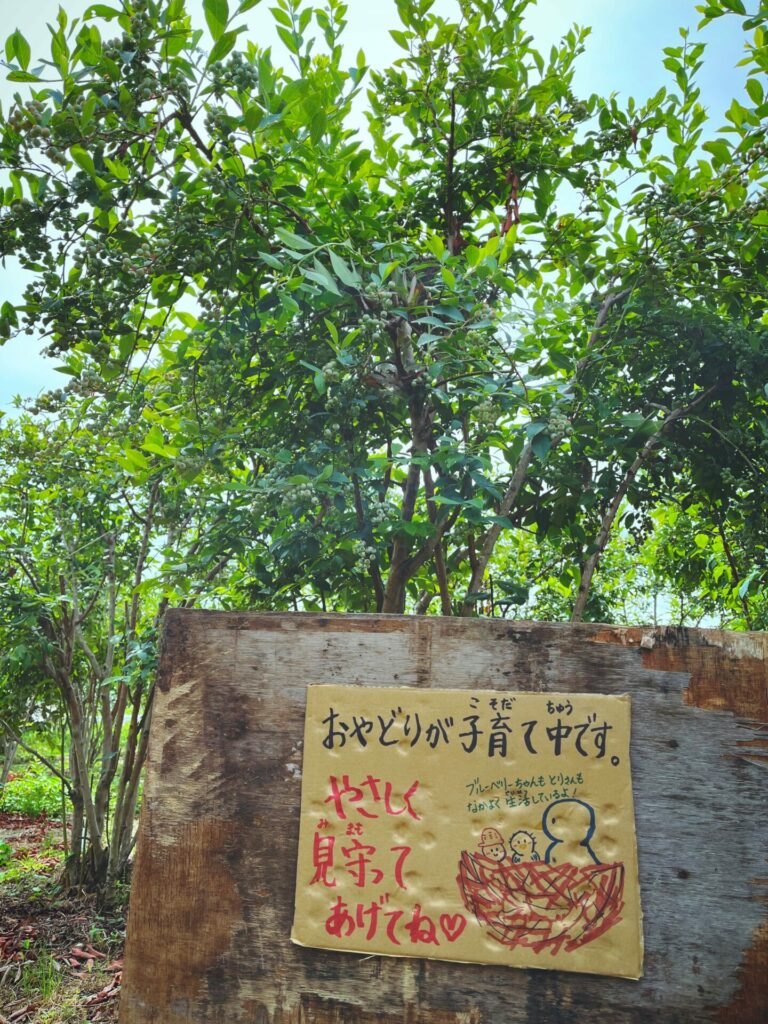 おやどりが子育て中です。
ブルーベリーちゃんもとりさんも
なかよく生活しているよ!
やさしく
見守って
あげてね♡